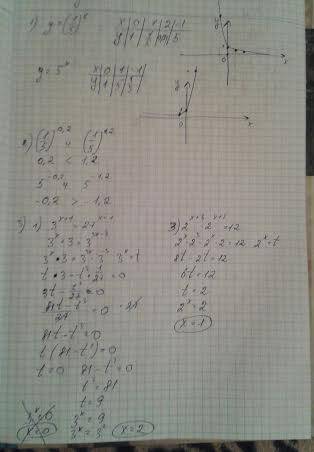 1) y = (1/5)^x
x | 0 | 1 | 2 | -1
y | 1 | 1/5 | | 5
y = 5^x
x | 0 | 1 | -1
y | 1 | 5 |
y
0
x
y
0
x
2) (1/5)^0,2 и (1/5)^1,2
0,2 < 1,2
5^-0,2 и 5^-1,2
-0,2 > -1,2
3) 1) 3^x+1 = 27^x-1
3^x · 3 = 3^3x-3
3^x · 3 = 3^3x · 3^-3 3^x = t
t · 3 - t^3 · 1/27 = 0
3t - t^3/27 = 0
81t - t^3/27 = 0 · 27
81t - t^3 = 0
t(81 - t^2) = 0
t = 0 81 - t^2 = 0
t^2 = 81
t = 9
3^x = 0 3^x = 9
x = 0 3^x = 3^2 x = 2
2^x+3 - 2^x+1 = 12
2^x · 2^3 - 2^x · 2 = 12 2^x = t
8t - 2t = 12
6t = 12
t = 2
2^x = 2
x = 1